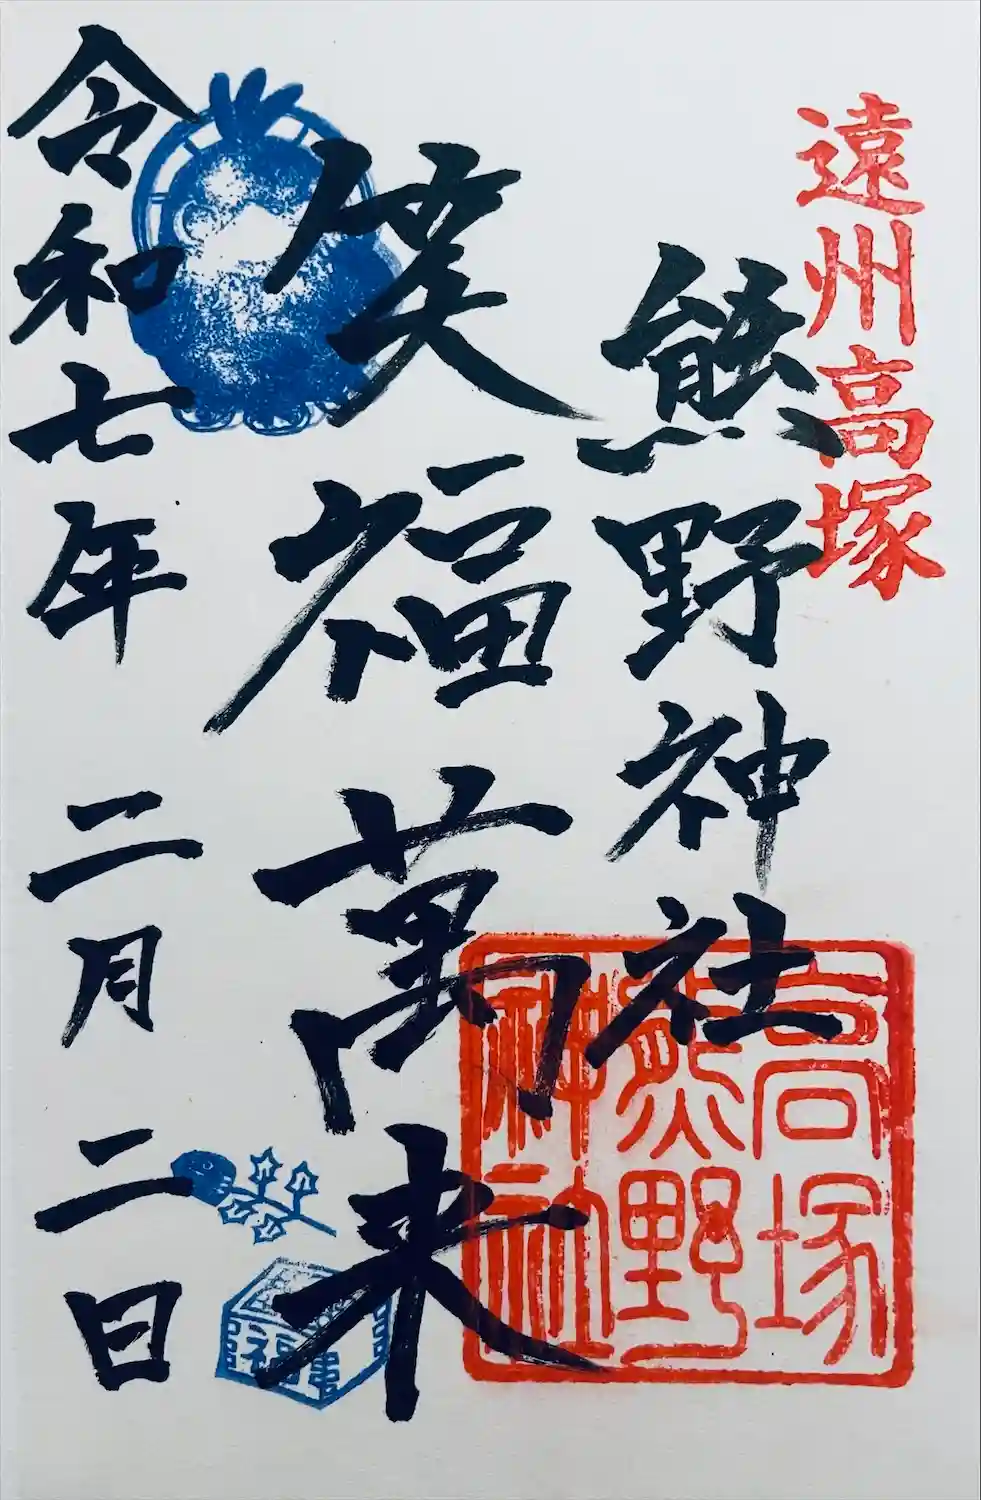 遠州高塚
熊野神社
福萬来
令和七年 二月 二日
高塚
熊野
神社
福